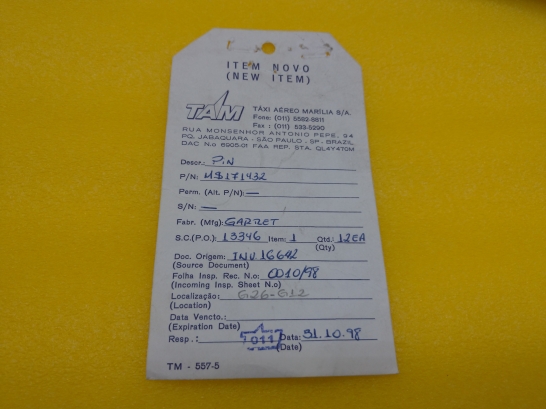 ITEM NOVO
(NEW ITEM)
TAM
TÁXI AÉREO MARÍLIA S/A.
Fone: (011) 5582-8811
Fax : (011) 533-5290
RUA MONSENHOR ANTONIO PEPE, 94
PQ. JABAQUARA - SÃO PAULO - SP - BRAZIL
DAC N.o 6905-01 FAA REP. STA. QL4Y470M
Descr.: PIN
P/N: MS171432
Parm. (Alt. P/N): —
S/N: —
Fabr. (Mfg): GARRET
S.C.(P.O.): 13346 Item: 1 Qtd.: 12EA
(Qty)
Doc. Origem: INV 16642
(Source Document)
Folha Insp. Rec. N.o: 0010/98
(Incoming Insp. Sheet N.o)
Localização: G26-G12
(Location)
Data Vencto.:
(Expiration Date)
Resp.: Data: 31.10.98
(Date)
TM - 557-5